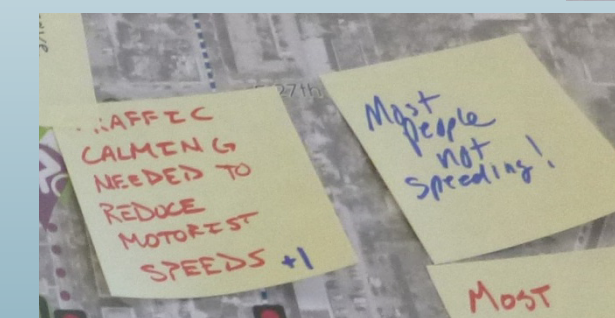 27th
...AFFIC
CALMING
NEEDED TO
REDUCE
MOTORIST
SPEEDS +1
Most
people
not
speeding!
MOST